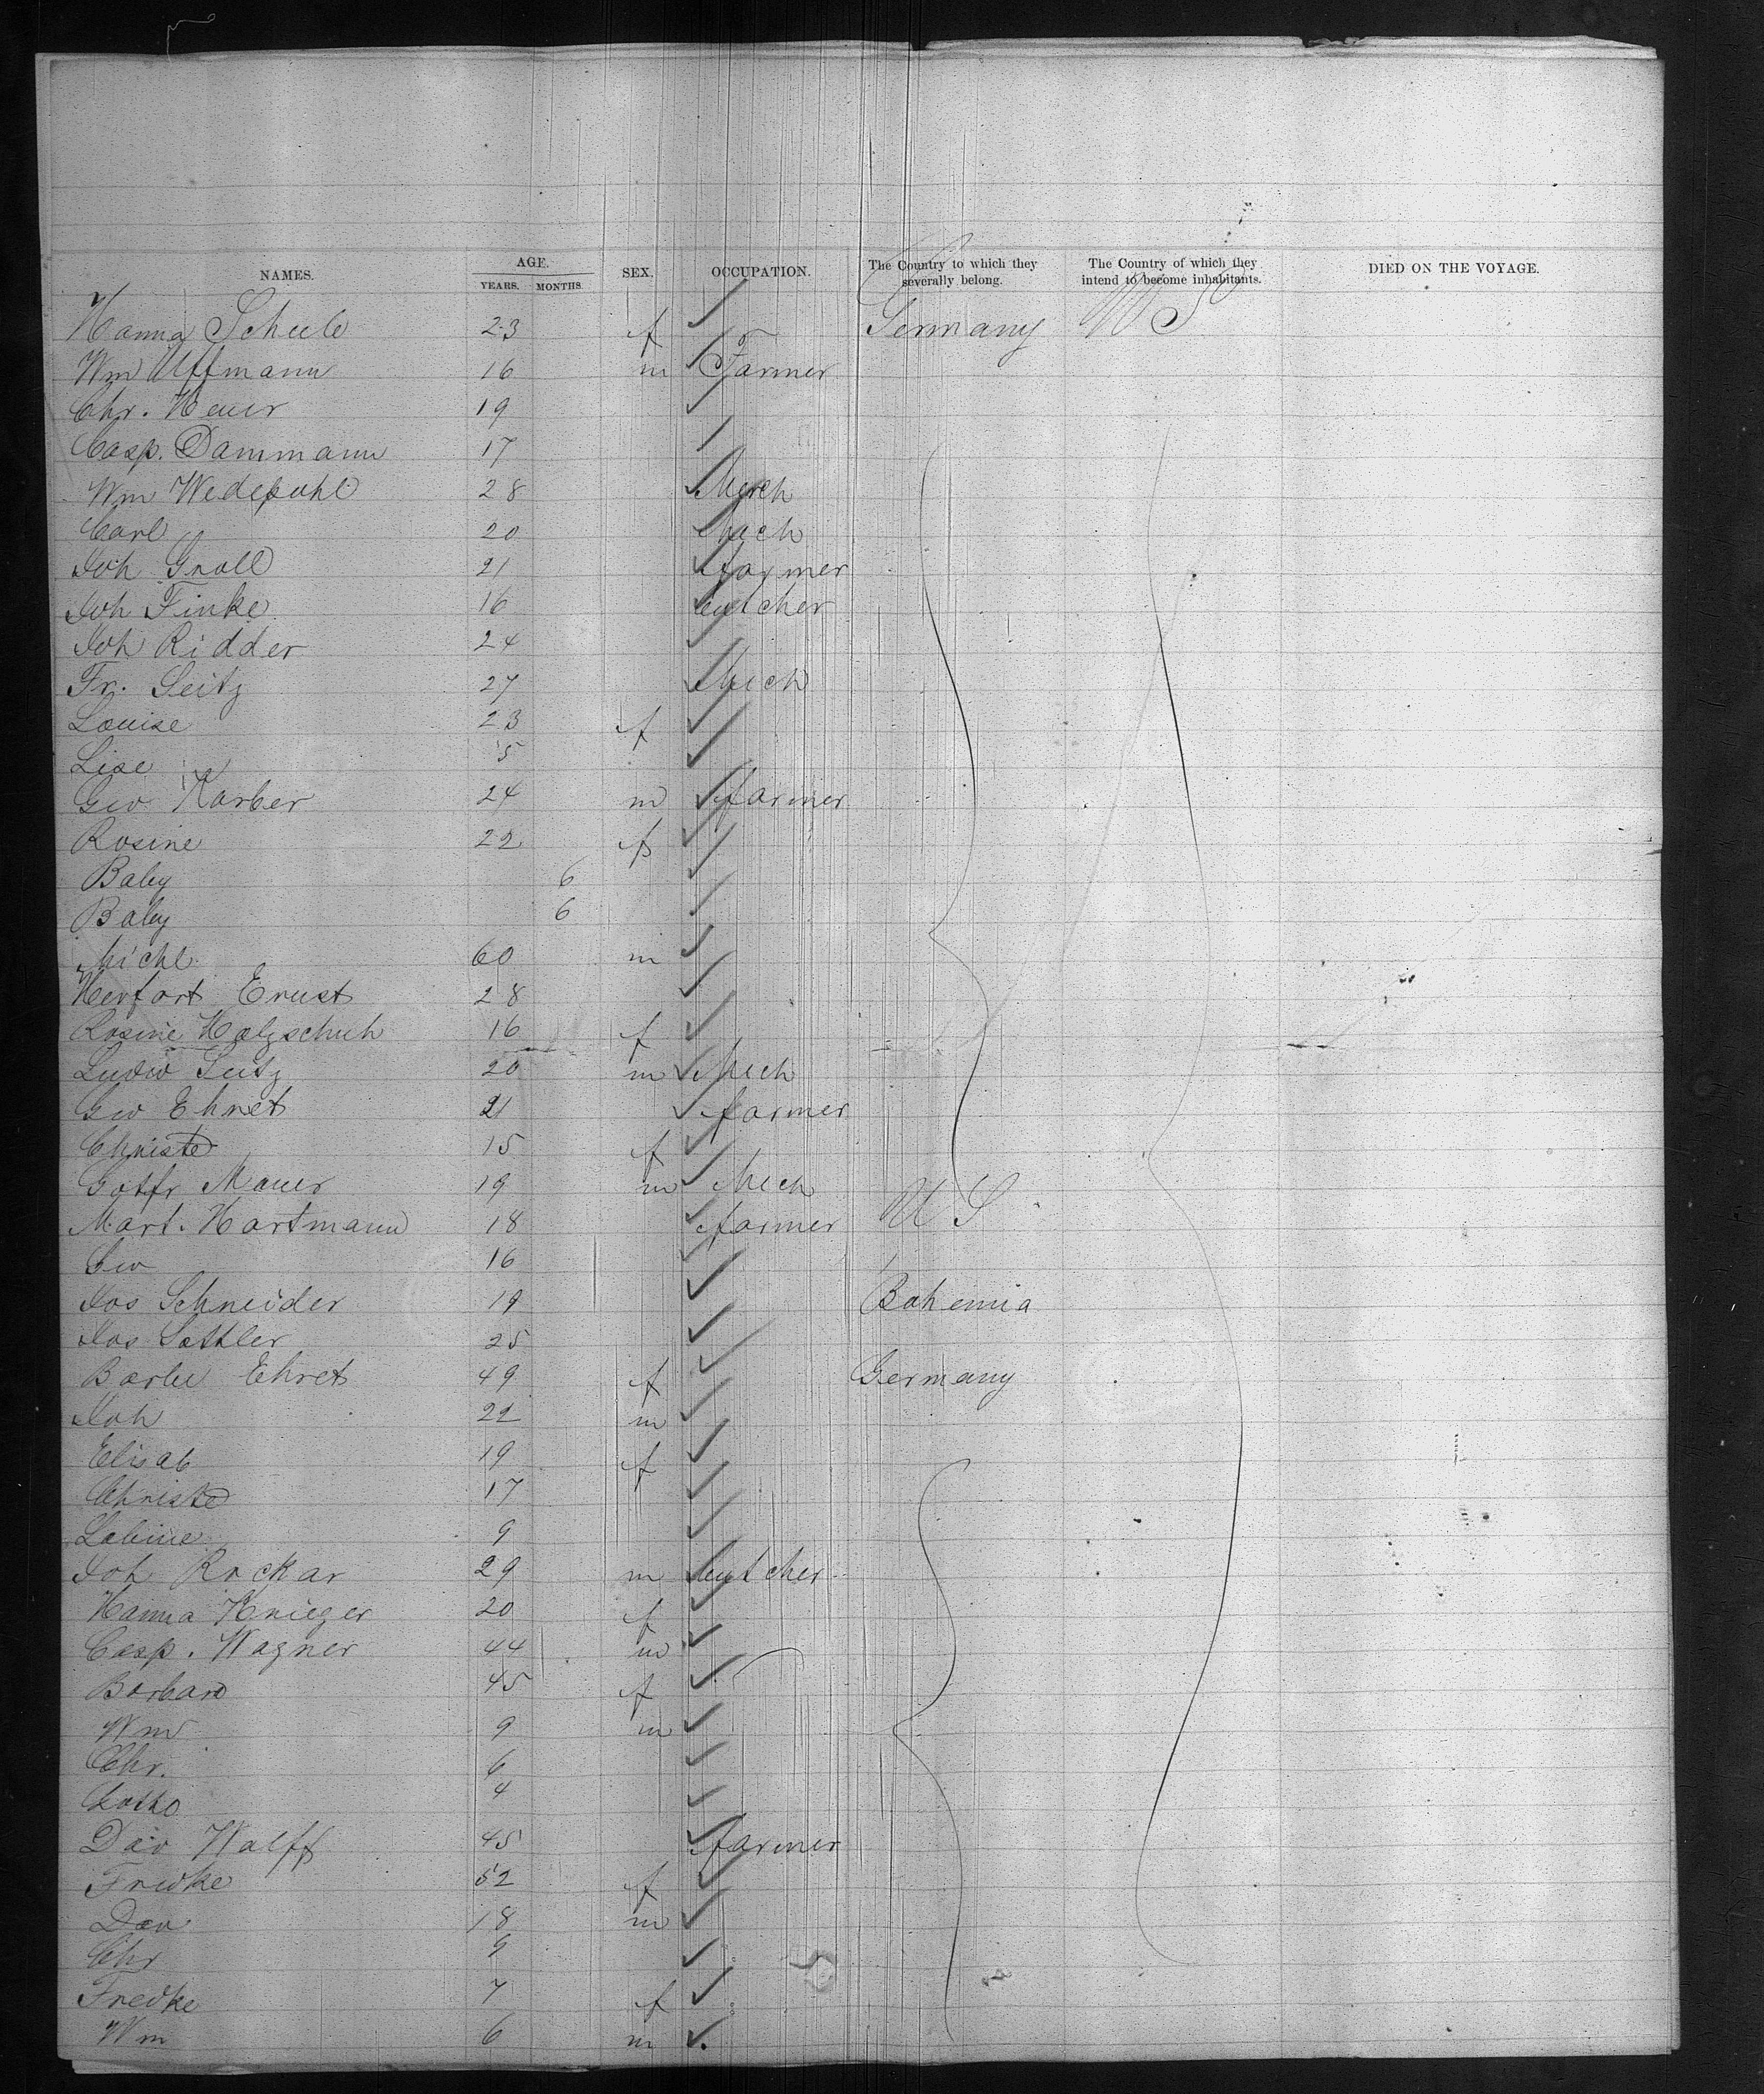 NAMES. AGE. YEARS. MONTHS. SEX. OCCUPATION. The Country to which they severally belong. The Country of which they intend to become inhabitants. DIED ON THE VOYAGE.
Hanna Scheele 23 f Germany U S
Wm Uffmann 16 m Farmer
Chr. Heuer 19
Casp. Dammann 17
Wm Wedepohl 28 Merch
Carl 20 Mech
Joh Groll 21 farmer
Joh Finke 16 butcher
Joh Ridder 24
Fr. Seitz 27 Mech
Louise 23 f
Lise 5
Geo Karber 24 m farmer
Rosine 22 f
Baby 6
Baby 6
Michl 60 m
Herfart Ernst 28
Rosine Holzschuh 16 f
Ludw Seitz 20 m Mech
Geo Ehret 21 farmer
Christe 15 f
Gotfr Mauer 19 m Mech U S
Mart. Hartmann 18 farmer
Geo 16
Jos Schneider 19 Bohemia
Jos Sattler 25
Barbe Ehret 49 f Germany
Joh 22 m
Elisab 19 f
Christe 17
Sabine 9
Joh Rockar 29 m butcher
Hanna Krieger 20 f
Casp. Wagner 44 m
Barbara 45 f
Wm 9 m
Chr. 6
4
Dav Wolff 45 farmer
Fredke 52 f
Dav 18 m
Chr 9
Fredke 7 f
Wm 6 m